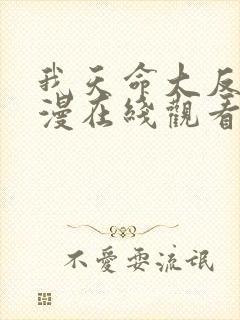 我天命大反
漫在綫觀看
不愛耍流氓